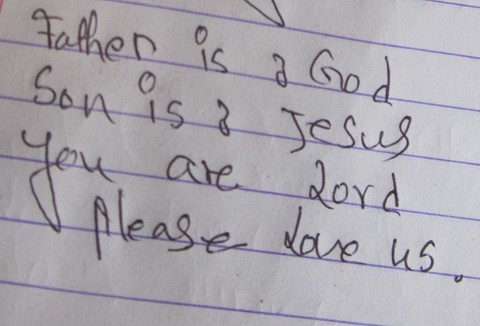 Father is a God
Son is a Jesus
you are Lord
please love us.